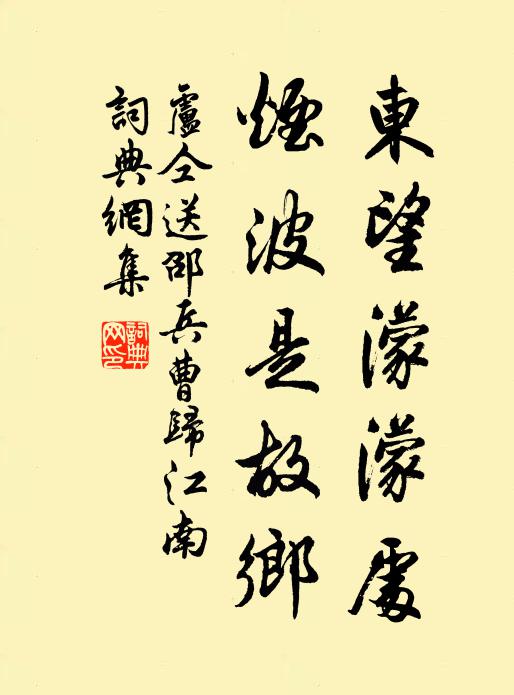 東望濛濛處
煙波是故鄉
盧仝送邵兵曹歸江南
詞典網集
詞典
网印